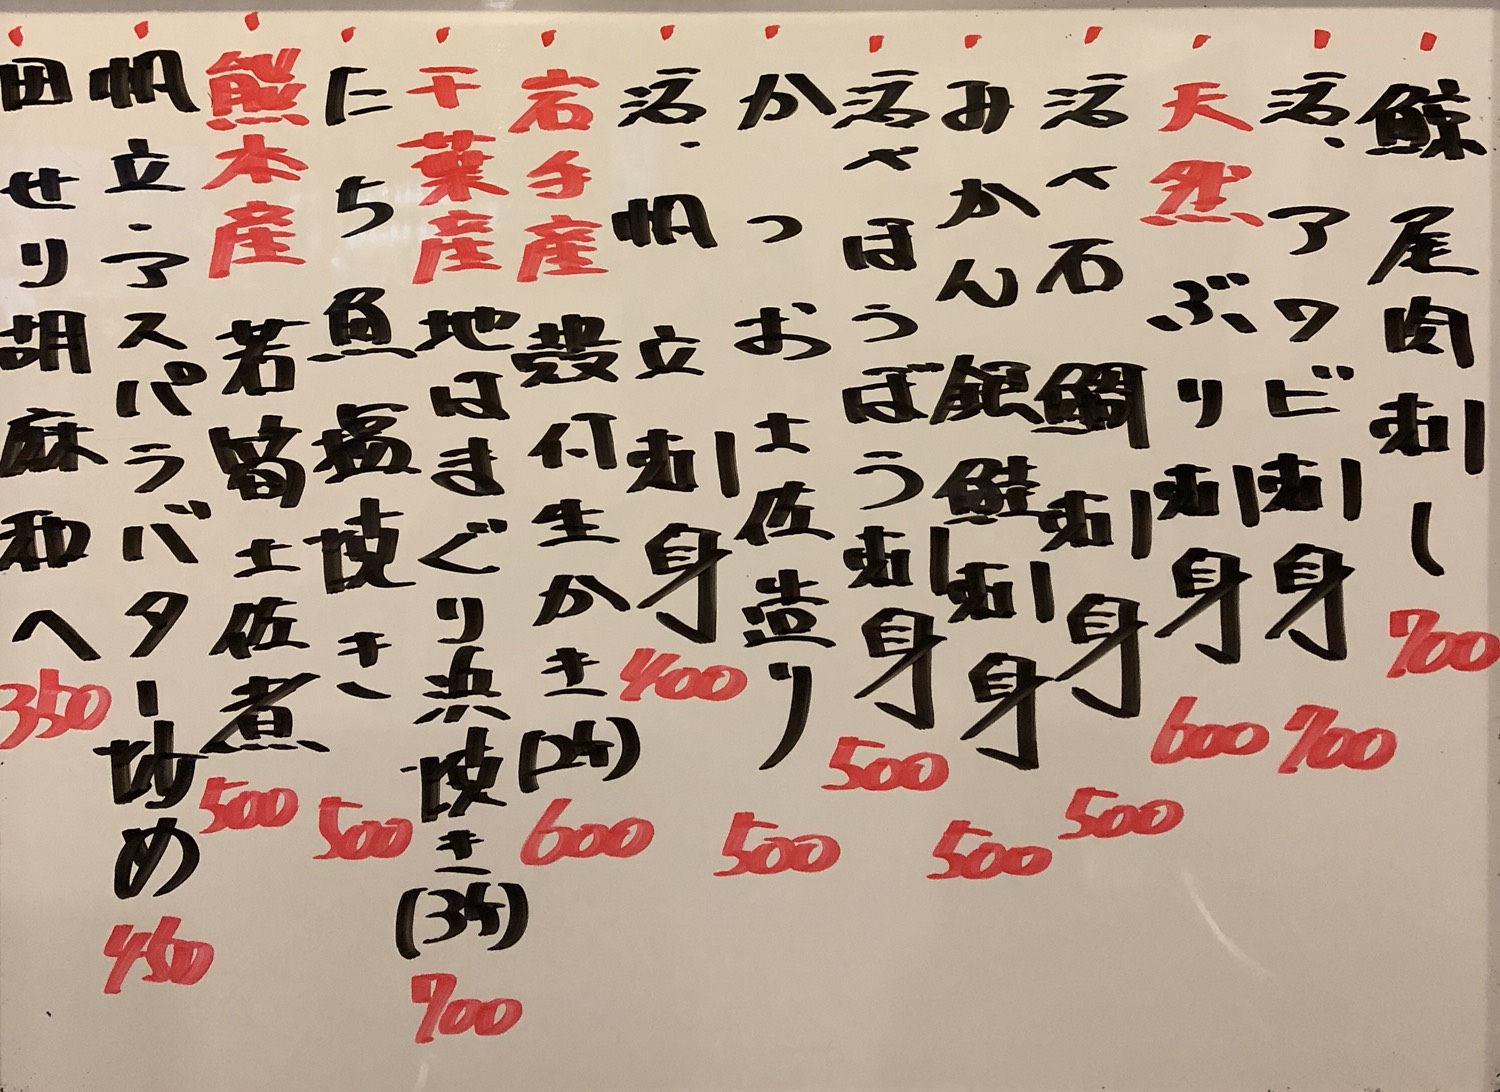 鯨尾肉刺し 700
活、アワビ刺身 700
天然ぶり刺身 600
活〆石鯛刺身 500
みかん銀鮭刺身 500
活〆ほうぼう刺身 500
かつお土佐造り 500
活、帆立刺身 400
岩手産殻付生かき(2ケ) 600
千葉産地はまぐり浜焼き(3ケ) 700
にち魚塩焼き 500
熊本産若筍土佐煮 500
帆立・アスパラバター炒め 450
田せり胡麻和へ 350